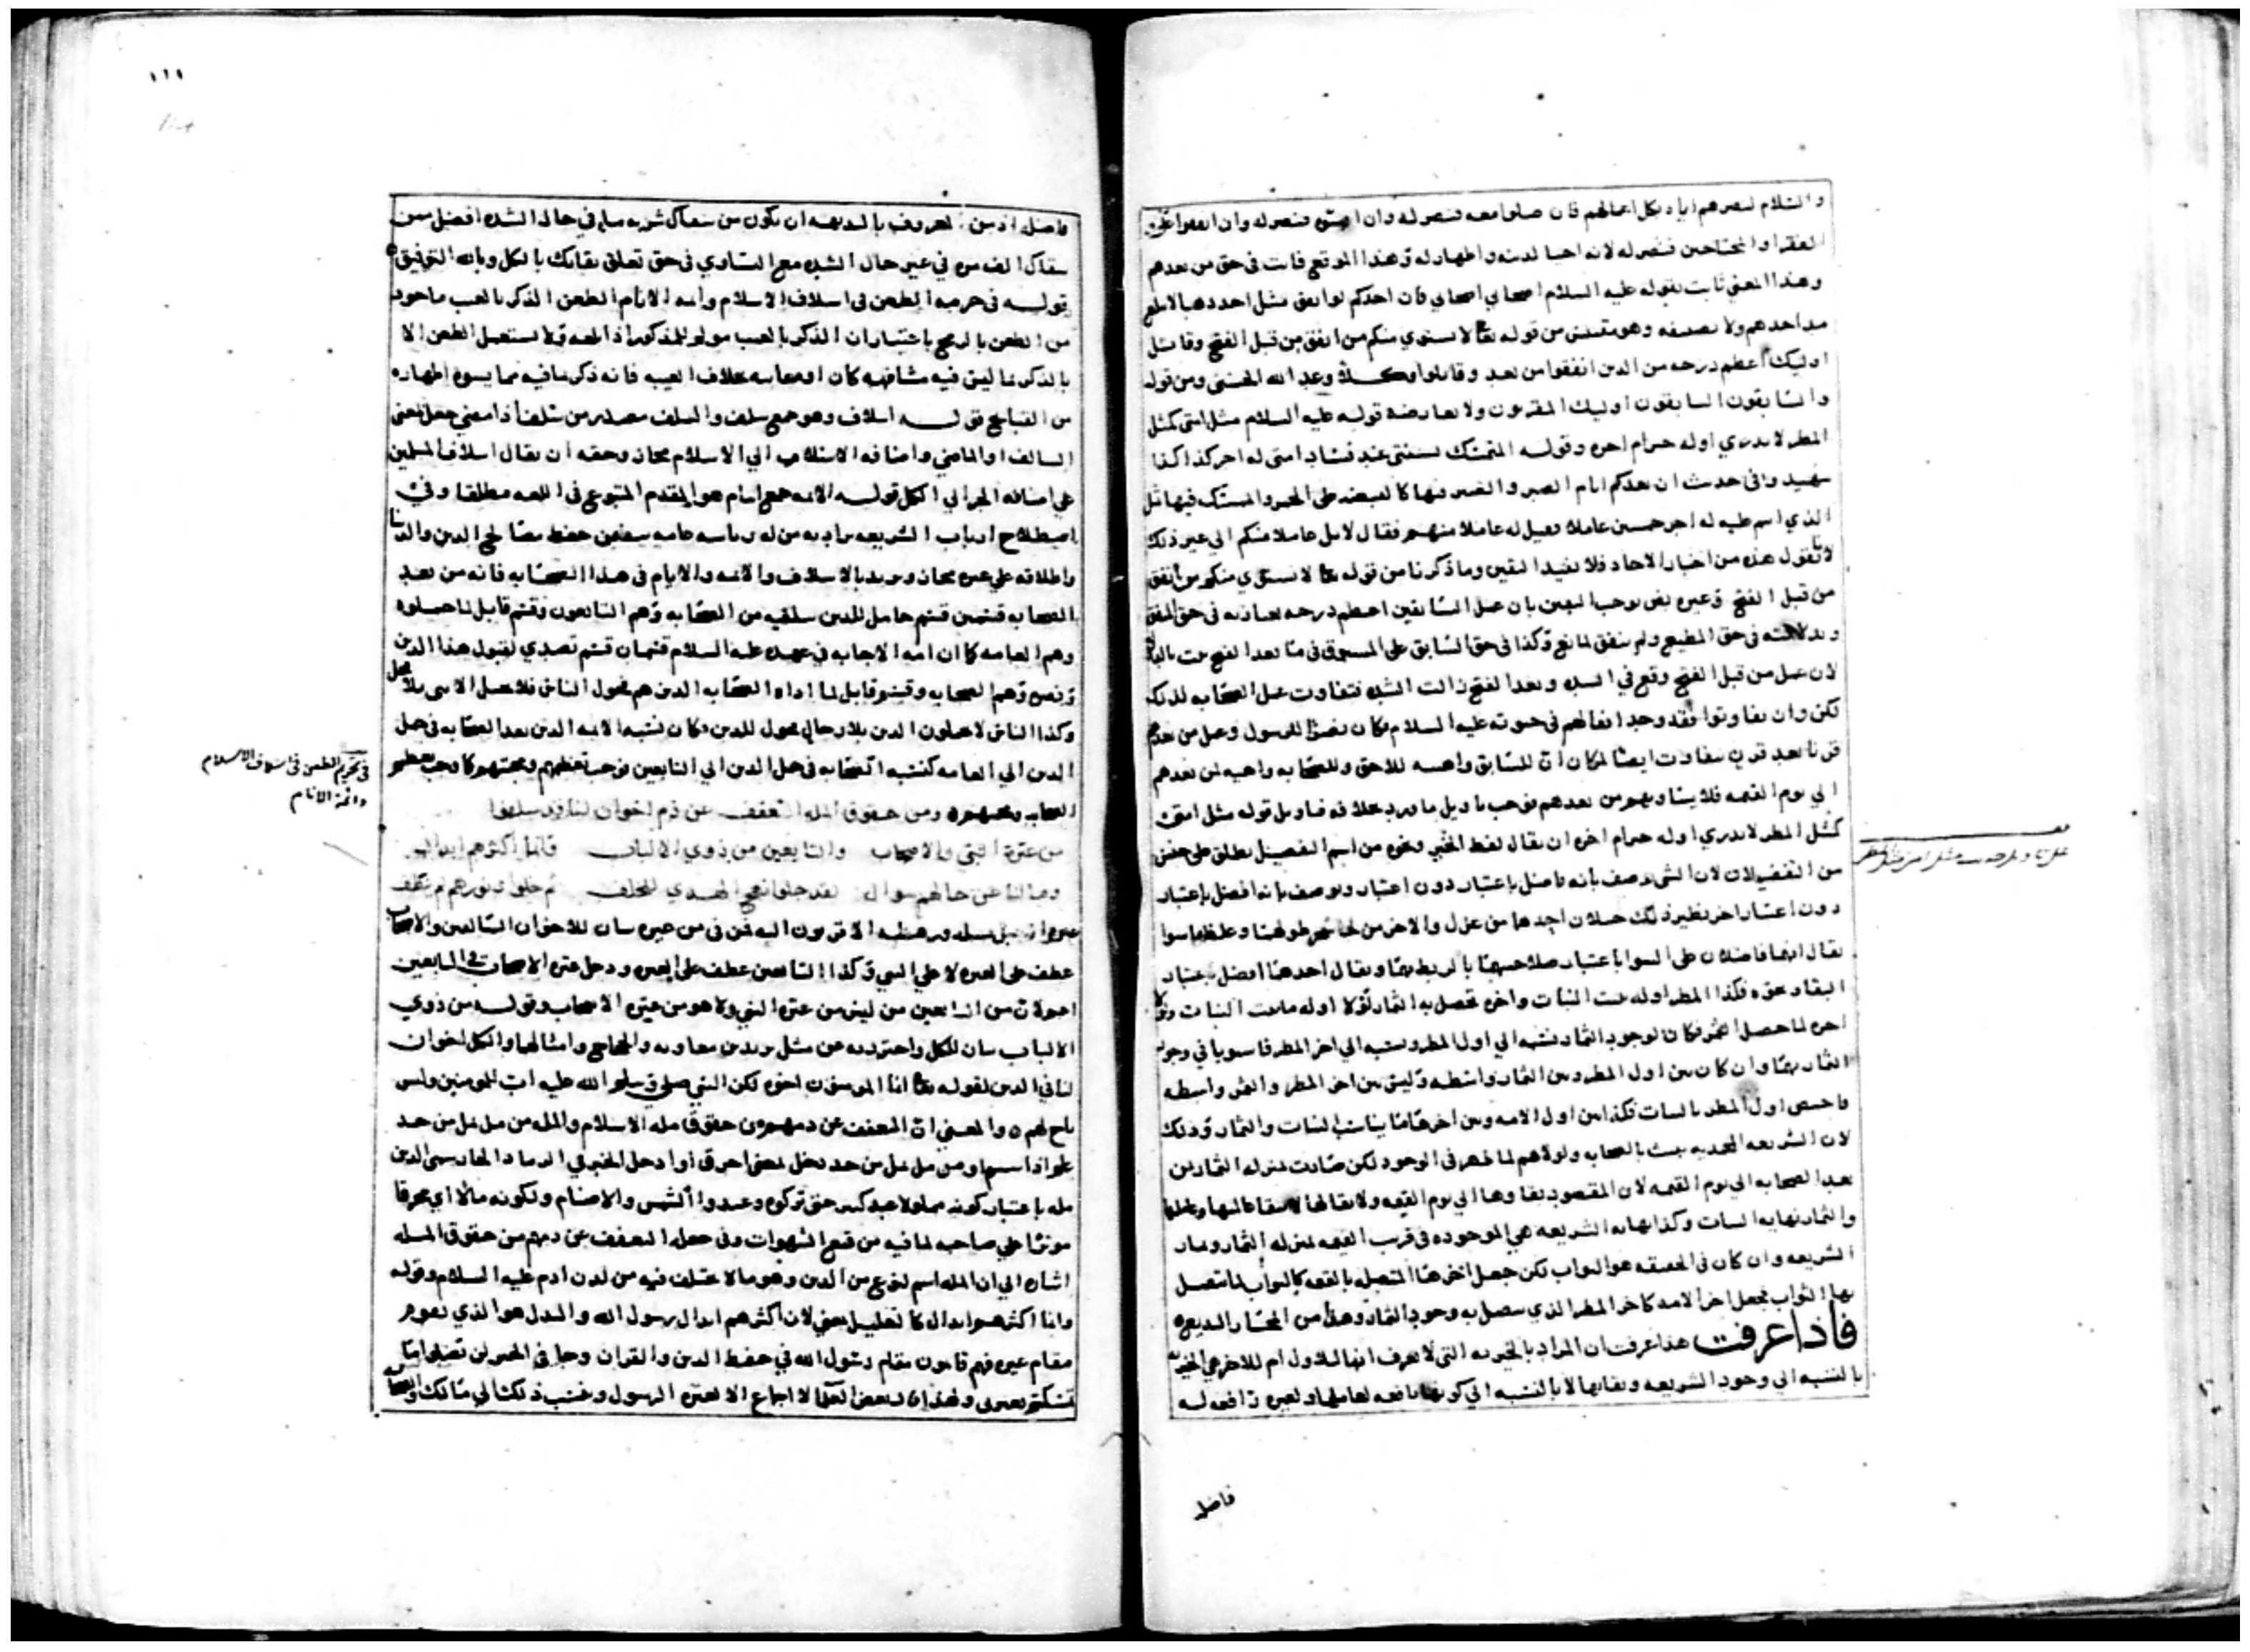 والسلام لنصرهم اياه بكل اعمالهم فان صلوا معه فنصر له وان فنصر له وان
الفقرا والمحتاجين فنصر له لانه احيا لدينه واظهار له وهذا الموقع فات في حق من بعدهم
وهذا المعنى ثابت بقوله عليه السلام اصحابي اصحابي فان احدكم لو انفق مثل احد ذهبا لا يبلغ
مد احدهم ولا نصيفه وهو مقتبس من قوله تعا لا يستوي منكم من انفق من قبل الفتح وقاتل
اوليك اعظم درجه من الذين انفقوا من بعد وقاتلوا وكلا وعد الله الحسنى ومن قوله
والسابقون السابقون اوليك المقربون ولا يعارضه قوله عليه السلام مثل امتى كمثل
المطر لا يدري اوله خير ام اخره وقوله المتمسك بسنتى عند فساد امتى له اجر كذا كذا
شهيد وفى حديث ان بعدكم ايام الصبر والصبر فيها كالقبض على الجمر والمتمسك فيها مثل
الذي انتم عليه له اجر خمسين عاملا فقيل له عاملا منهم فقال لا بل عاملا منكم الى غير ذلك
لانا نقول هذه من اخبار الاحاد فلا تفيد اليقين وما ذكرنا من قوله تعا لا يستوي منكم من انفق
من قبل الفتح وغيره نص يوجب اليقين بان عمل السابقين اعظم درجه بعبارته في حق المنفق
وبدلالته في حق المطيع ولم ينفق لمانع وكذا في حق السابق على المسبوق فى ما بعد الفتح
لان عمل من قبل الفتح وقع في الشده وبعد الفتح زالت الشده فتفاوت عمل الصحابه لذلك
لكن وان تفاوتوا فقد وجد افعالهم في حيوته عليه السلام فكان نصرا للرسول وعمل من بعدهم
قرنا بعد قرن يتفاوت ايضا لمكان ان للسابق واهميه للاحق وللصحابه واهميه لمن بعدهم
الى يوم القيمه فلا يساويهم من بعدهم فوجب تاويل ما ورد بخلافه فتاويل قوله مثل امتى
كمثل المطر لا يدري اوله خير ام اخره ان يقال لفظ الخير ونحوه من اسم التفضيل يطلق على
من التفضيل لان الشى يوصف بانه فاضل باعتبار دون اعتبار ويوصف بانه افضل باعتبار
دون اعتبار اخر نظير ذلك حبلان احدهما من غزل والاخر من لحا شجر طولهما وغلظهما سوا
يقال انهما فاضلان على السوا باعتبار صلاحيتهما بالربط بهما ويقال احدهما افضل باعتبار
البقا ونحوه فكذا المطر اوله ينبت النبات واخره تحصل به الثمار لولا اوله ما نبت النبات ولولا
اخره لما حصل الثمر فكان لوجود الثمار نسبه الي اول المطر ونسبه الي اخر المطر فاستويا في وجود
الثمار بهما وان كان بين اول المطر وبين الثمار واسطه وليس بين اخر المطر والثمر واسطه
فاختص اول المطر بالنبات فكذا بين اول الامه وبين اخرها ما يناسب النبات والثمار وذلك
لان الشريعه المحمديه نبتت بالصحابه ولولاهم لما ظهر في الوجود لكن صارت بمنزله الثمار بمن
بعد الصحابه الى يوم القيمه لان المقصود بقاوها الى يوم القيمه ولا بقا لها الا ببقا
والثمار نهايه النبات وكذا نهايه الشريعه هي الموجوده في قرب القيمه بمنزله الثمار وثمار
الشريعه وان كان في الحقيقه هو الثواب لكن جعل اخرها المتصل بالقيمه كالثواب لما يتصل
بها الثواب فجعل اخر الامه كاخر المطر الذي يتصل به وجود الثمار وهذا من المجاز البديع
فاذا عرفت هذا عرفت ان المراد بالخيريه التى لا يعرف انها للاول ام للاخر هي الخيريه
بالنسبه الي وجود الشريعه وبقايها لا بالنسبه الى كونها نافعه لعاملها ولغيره رافعه له
فاضل
فاضل اذ من المعروف بالبديهه ان يكون من سقاك شربه ما في حال الشده افضل ممن
سقاك الف مره في غير حال الشده مع التساوي في حق تعلق بقايك بالكل وبالله التوفيق
قوله في حرمه الطعن فى اسلاف الاسلام وائمه الانام الطعن الذكر بالعيب ماخوذ
من الطعن بالرمح باعتبار ان الذكر بالعيب مولم للمذكور اذا بلغه ولا يستعمل الطعن الا
بالذكر بما ليس فيه مشافهه كان او مغايبه بخلاف الغيبه فانه ذكر بما فيه مما يسوه اظهاره
من القبايح قوله اسلاف وهو جمع سلف والسلف مصدر من سلف اذا مضي جعل بمعنى
السالف او الماضي واضافه الاسلاف الي الاسلام مجاز وحقه ان يقال اسلاف المسلمين
على اضافه الجز الي الكل قوله الائمه جمع امام هو المقدم المتبوع فى اللغه مطلقا وفي
اصطلاح ارباب الشريعه يراد به من له رياسه عامه يتضمن حفظ مصالح الدين والدنيا
واطلاقه على غيره مجاز ويريد بالاسلاف والائمه والانام فى هذا الصحابه فانه من بعد
الصحابه قسمين قسم حامل للدين سلفيه من الصحابه وهم التابعون وقسم قابل لما حملوه
وهم العامه كما ان امه الاجابه في عهده عليه السلام قسمان قسم تصدي لقبول هذا الدين
وهم الصحابه وقسم قابل لما اداه الصحابه الذين هم فحول الناس فلا تحمل الانثى بلا فحل
وكذا الناس لا يحملون الدين بلا رجال فحول للدين فكان نسبه الائمه الذين بعد الصحابه في حمل
الدين الي العامه كنسبه الصحابه في حمل الدين الي التابعين فوجب تعظيمهم ومحبتهم كما وجب تعظيم
الصحابه ومحبتهم ومن حقوق المله التعفف عن ذم اخوان لنا قد سلفوا
من عترة النبي والاصحاب والتابعين من ذوي الالباب فانما اكثرهم ابدال
وما لنا عن حالهم سوال لقد جلوا نهج الهدي للخلف ثم خلوا ونورهم لم ينكف
عتره الرجل نسله ورهطه الاقربون اليه فمن في من عتره بيان للاخوان السالفين والاصحاب
عطف على العتره لا على النبي وكذا التابعين عطف على العتره ودخل عتره الاصحاب في التابعين
اذ من التابعين من ليس من عتره النبي ولا هو من عتره الاصحاب وقوله من ذوي
الالباب بيان للكل واحترز به عن مثل يزيد بن معاويه والحجاج وامثالهما والكل اخوان
لنا في الدين لقوله تعا انما المومنون اخوه لكن النبي صلي الله عليه اب للمومنين وليس
باخ لهم والمعنى ان التعفف عن ذمهم من حقوق مله الاسلام والمله من مل يمل من حد
مله باعتبار كونه مملولا عند كثير حتى تركوه وعبدوا الشمس والاصنام ولكونه مالا اي محرقا
موثرا علي صاحبه لما فيه من قمع الشهوات وفى جعل التعفف عن ذمهم من حقوق المله
اشاره الي ان المله اسم لنوع من الدين وهو ما لا يختلف فيه من لدن ادم عليه السلام وقوله
وانما اكثرهم ابدال كالتعليل يعني لان اكثرهم ابدال رسول الله والبدل هو الذي يقوم
مقام غيره فهم قايمون مقام رسول الله في حفظ الدين والقران وجا فى الخبر لن تضلوا ما
تمسكتم بعترتى ولهذا قال بعض العلما لا اجماع الا لعتره الرسول ونسب ذلك الي مالك
في تحريم الطعن في اسلاف الاسلام
وائمة الانام
١١١